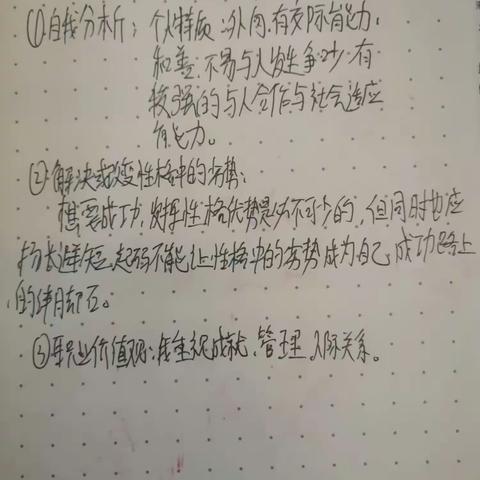 ①自我分析：个人特质：外向.有交际能力.
和善.不易与人发生争吵.有
较强的与人合作与社会适应
能力。
②解决或改变性格中的劣势：
想要成功,发挥性格优势是必不可少的,但同时也应
扬长避短,起码不能让性格中的劣势成为自己,成功路上
的绊脚石。
③职业价值观:我重视成就、管理、人际关系。